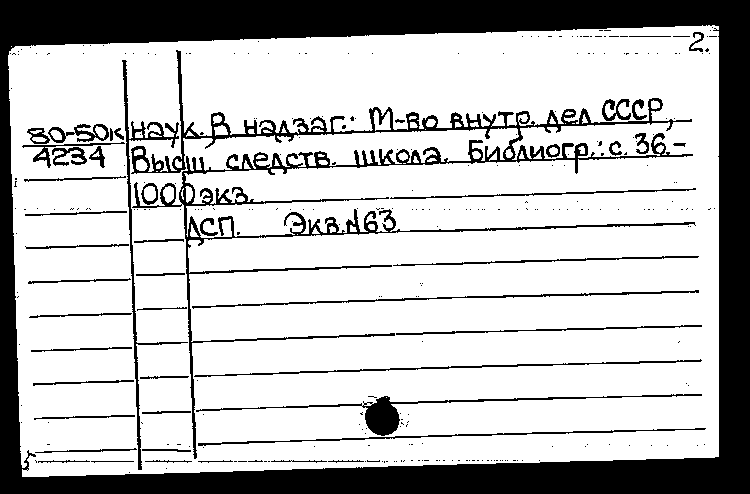 2.
80-50к наук. В надзаг.: М-во внутр. дел СССР,
4234 Высш. следств. школа. Библиогр.: с. 36.-
1000 экз.
ДСП. Экз.№63
5